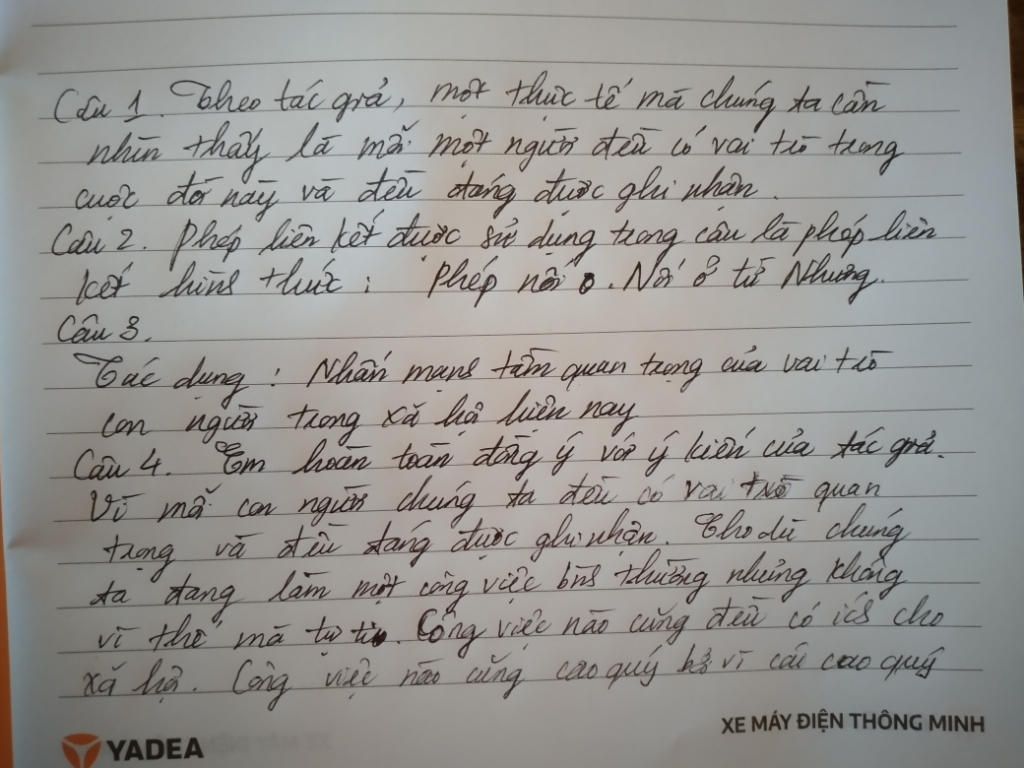 Câu 1. Theo tác giả, một thực tế mà chúng ta cần
nhìn thấy là mỗi một người đều có vai trò trong
cuộc đời này và đều đáng được ghi nhận.
Câu 2. Phép liên kết được sử dụng trong câu là phép liên
kết hình thức : Phép nối. Nối ở từ Nhưng.
Câu 3.
Tác dụng : Nhấn mạnh tầm quan trọng của vai trò
con người trong xã hội hiện nay
Câu 4. Em hoàn toàn đồng ý với ý kiến của tác giả.
Vì mỗi con người chúng ta đều có vai trò quan
trọng và đều đáng được ghi nhận. Cho dù chúng
ta đang làm một công việc bình thường nhưng không
vì thế mà tự ti. Công việc nào cũng đều có ích cho
xã hội. Công việc nào cũng cao quý bởi vì cái cao quý
YADEA
XE MÁY ĐIỆN THÔNG MINH